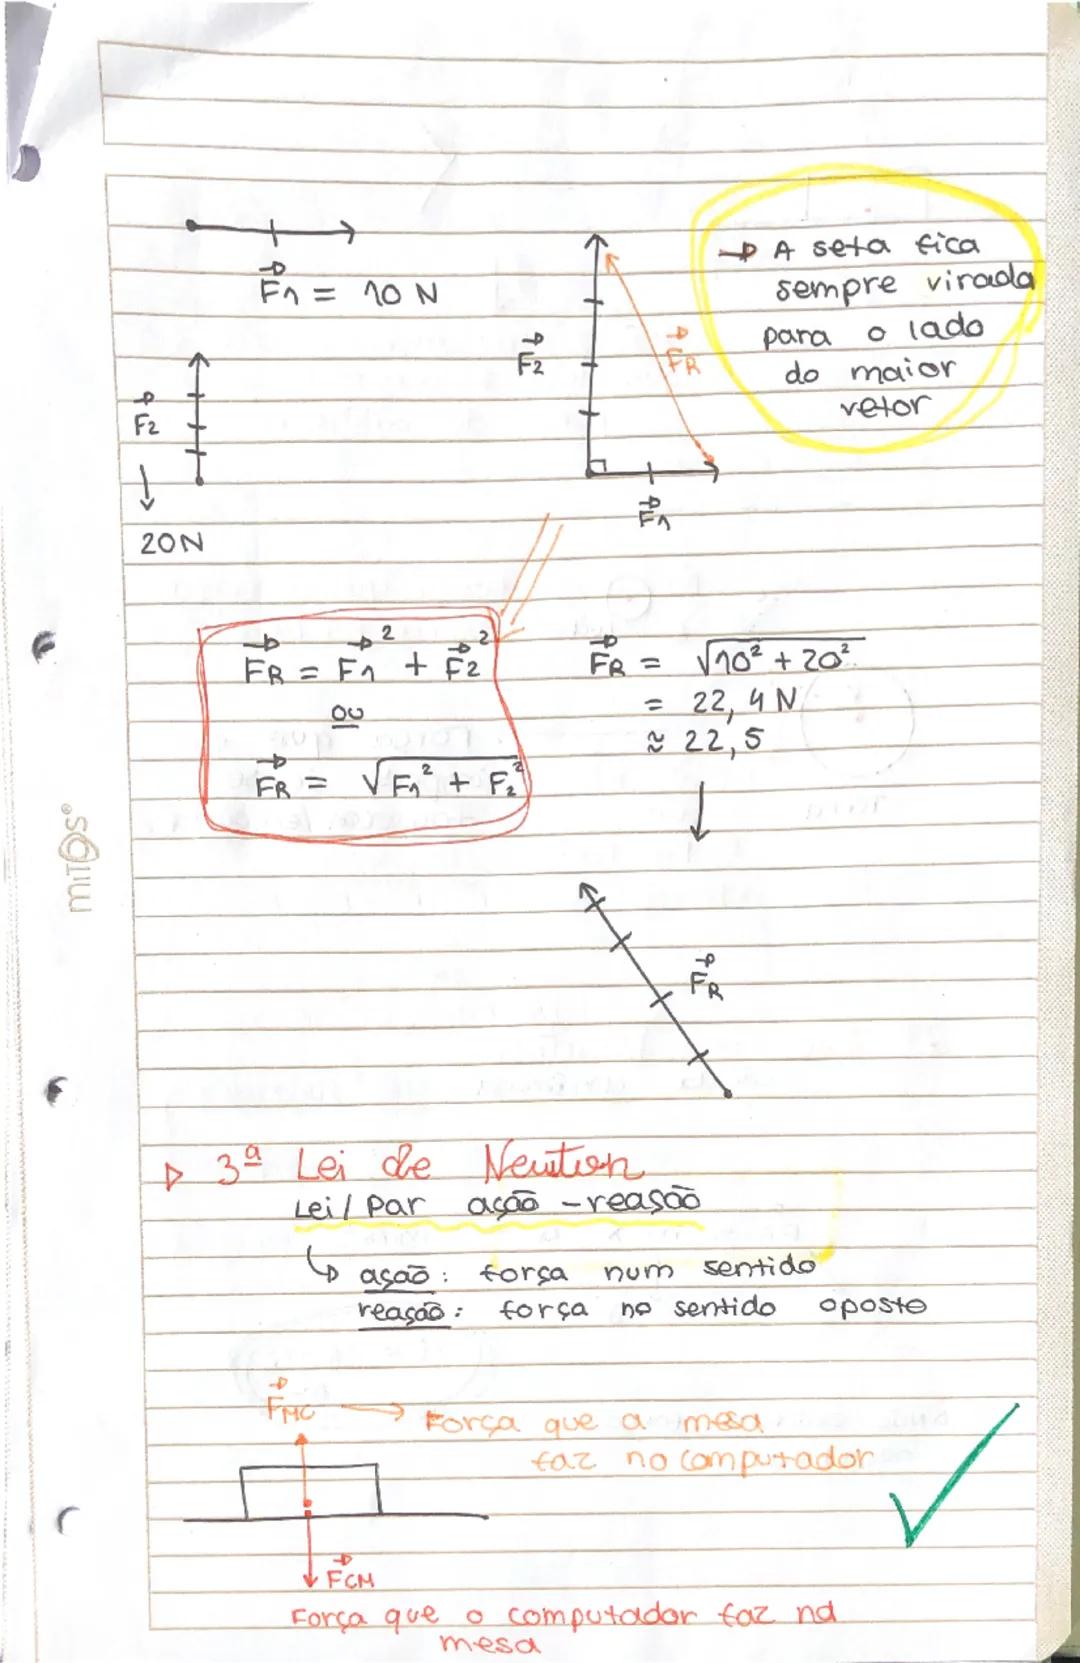 F₁ = 10 N
F₂
20N
F₂
F₁
FR
→ A seta fica
sempre virada
para o lado
do maior
vetor
FR = F₁² + F₂²
ou
FR = √F₁² + F₂²
FR = √10² + 20²
= 22,4 N
≈ 22,5
FR
mitos®
▷ 3ª Lei de Newton
Lei / Par ação - reasão
↳ ação: força num sentido
reação: força no sentido oposto
FMC → Força que a mesa
faz no computador
FCM
Força que o computador faz na
mesa